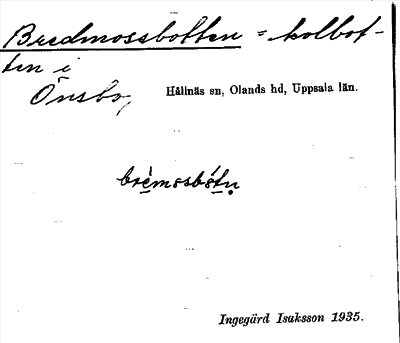 Bredmossbotten = kolbot-
ten i
Önsbo, Hållnäs sn, Olands hd, Uppsala län.
brèmosbótn̥
Ingegärd Isaksson 1935.